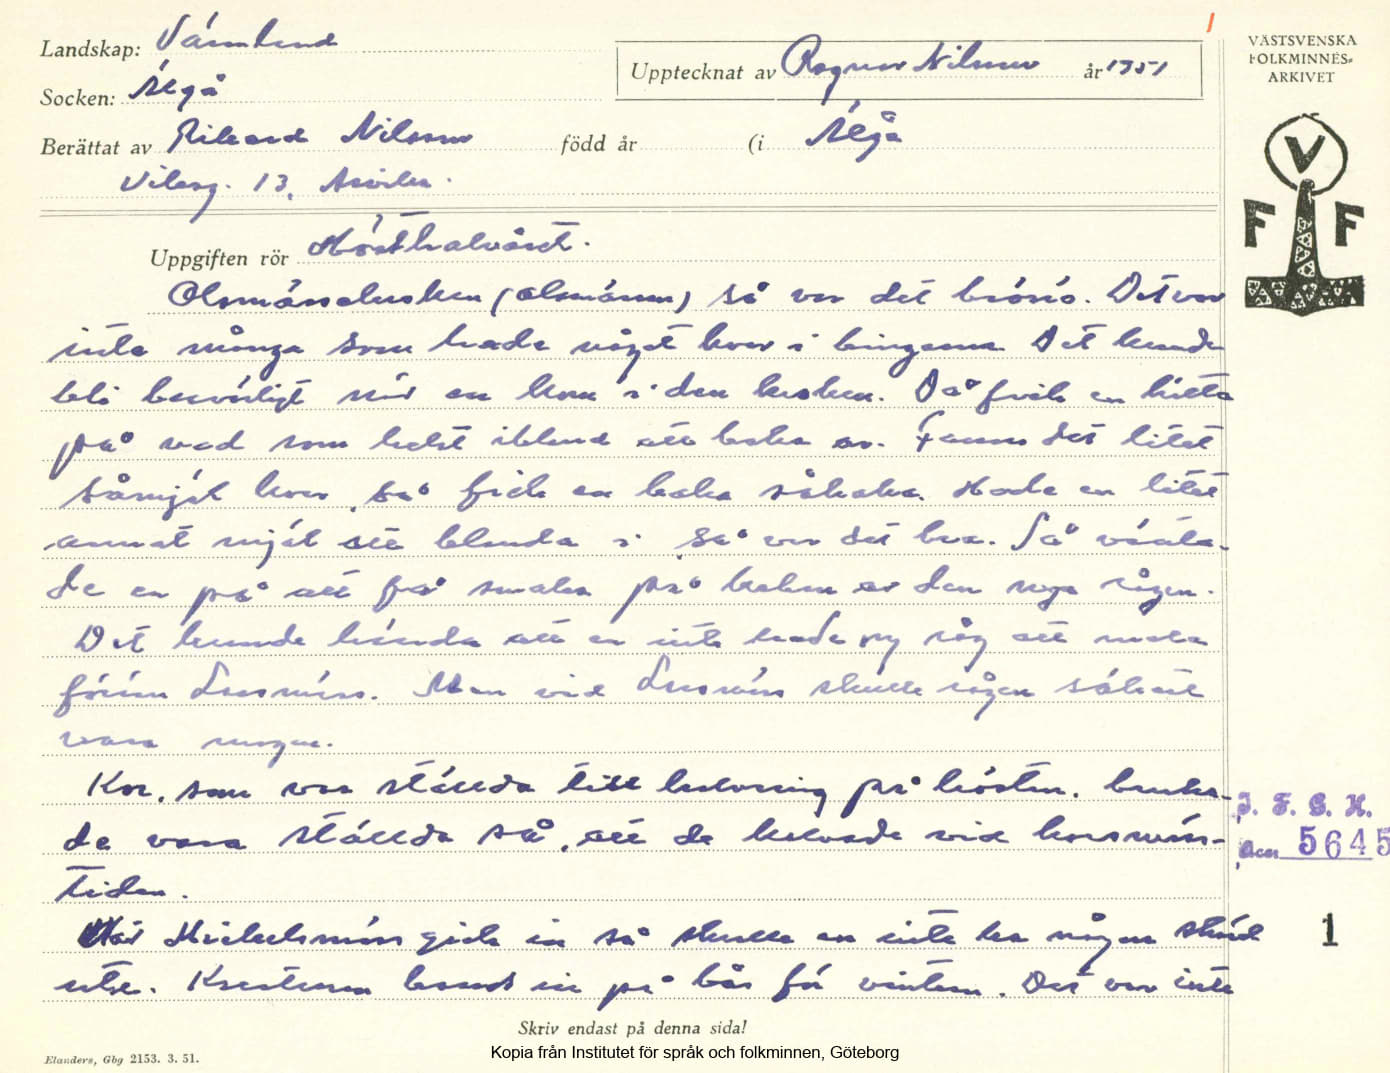 Landskap: Värmland
Upptecknat av Ragnar Nilsson år 1951
VÄSTSVENSKA
FOLKMINNES-
ARKIVET
Socken: Älgå
Berättat av Rikard Nilsson född år (i Älgå
Vikeng. 13, Arvika.
V
F F
Uppgiften rör Hösthalvåret.
Olsmässelusken (olsmässn) så var det brörö. Det var
inte många som hade något kvar i bingarna. Det kunde
bli besvärligt när en kom i den lusken. Då fick en hitta
på vad som helst ibland att baka av. Fanns det litet
såmjöl kvar, så fick en baka såkaka. Hade en litet
annat mjöl att blanda i, så var det bra. Så vänta-
de en på att få smaka på kakan av den nya rågen.
Det kunde hända att en inte hade ny råg att mala
förrän Larsmäss. Men vid Larsmäss skulle rågen säkert
vara mogen.
Kor, som var ställda till kalvning på hösten, bruka-
de vara ställda så, att de kalvade vid korsmäss-
tiden.
När Mickelsmäss gick in så skulle en inte ha någon skörd
ute. Kreaturen bands in på bås för vintern. Det var inte
I. F. G. H.
Acc. 5645
1
Skriv endast på denna sida!
Elanders, Gbg 2153. 3. 51.
Kopia från Institutet för språk och folkminnen, Göteborg